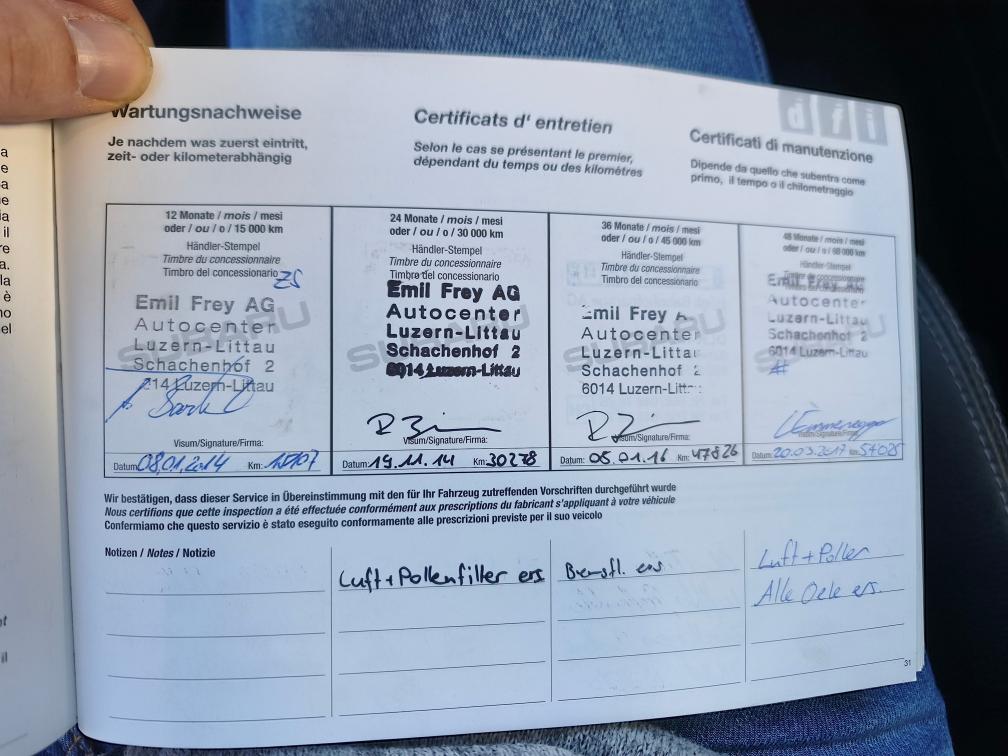 Wartungsnachweise
Je nachdem was zuerst eintritt,
zeit- oder kilometerabhängig
Certificats d' entretien
Selon le cas se présentant le premier,
dépendant du temps ou des kilomètres
dfi
Certificati di manutenzione
Dipende da quello che subentra come
primo, il tempo o il chilometraggio
12 Monate / mois / mesi
oder / ou / o / 15 000 km
Händler-Stempel
Timbre du concessionnaire
Timbro del concessionario
Emil Frey AG
Autocenter
Luzern-Littau
Schachenhof 2
Luzern-Littau
SUBARU
Visum/Signature/Firma:
Datum: 08.01.2014 Km:
24 Monate / mois / mesi
oder / ou / o / 30 000 km
Händler-Stempel
Timbre du concessionnaire
Timbro del concessionario
Emil Frey AG
Autocenter
Luzern-Littau
Schachenhof 2
6014 Luzern-Littau
SUBARU
Visum/Signature/Firma:
Datum: 19.11.14 Km: 30278
36 Monate / mois / mesi
oder / ou / o / 45 000 km
Händler-Stempel
Timbre du concessionnaire
Timbro del concessionario
Emil Frey A
Autocenter
Luzern-Littau
Schachenhof 2
6014 Luzern-Litt
SUBARU
Visum/Signature/Firma:
Datum: 05.01.16 Km: 47826
48 Monate / mois / mesi
oder / ou / o / 60 000 km
Händler-Stempel
Timbre du concessionnaire
Timbro del concessionario
Emil Frey AG
Autocenter
Luzern-Littau
Schachenhof 2
6014 Luzern-Littau
SUBARU
Visum/Signature/Firma:
Datum: 20.03.2017 Km: 54025
Wir bestätigen, dass dieser Service in Übereinstimmung mit den für Ihr Fahrzeug zutreffenden Vorschriften durchgeführt wurde
Nous certifions que cette inspection a été effectuée conformément aux prescriptions du fabricant s'appliquant à votre véhicule
Confermiamo che questo servizio è stato eseguito conformamente alle prescrizioni previste per il suo veicolo
Notizen / Notes / Notizie
Luft + Pollenfilter ers
Bremsfl. ers
Luft + Pollen
Alle Oele ers.
31